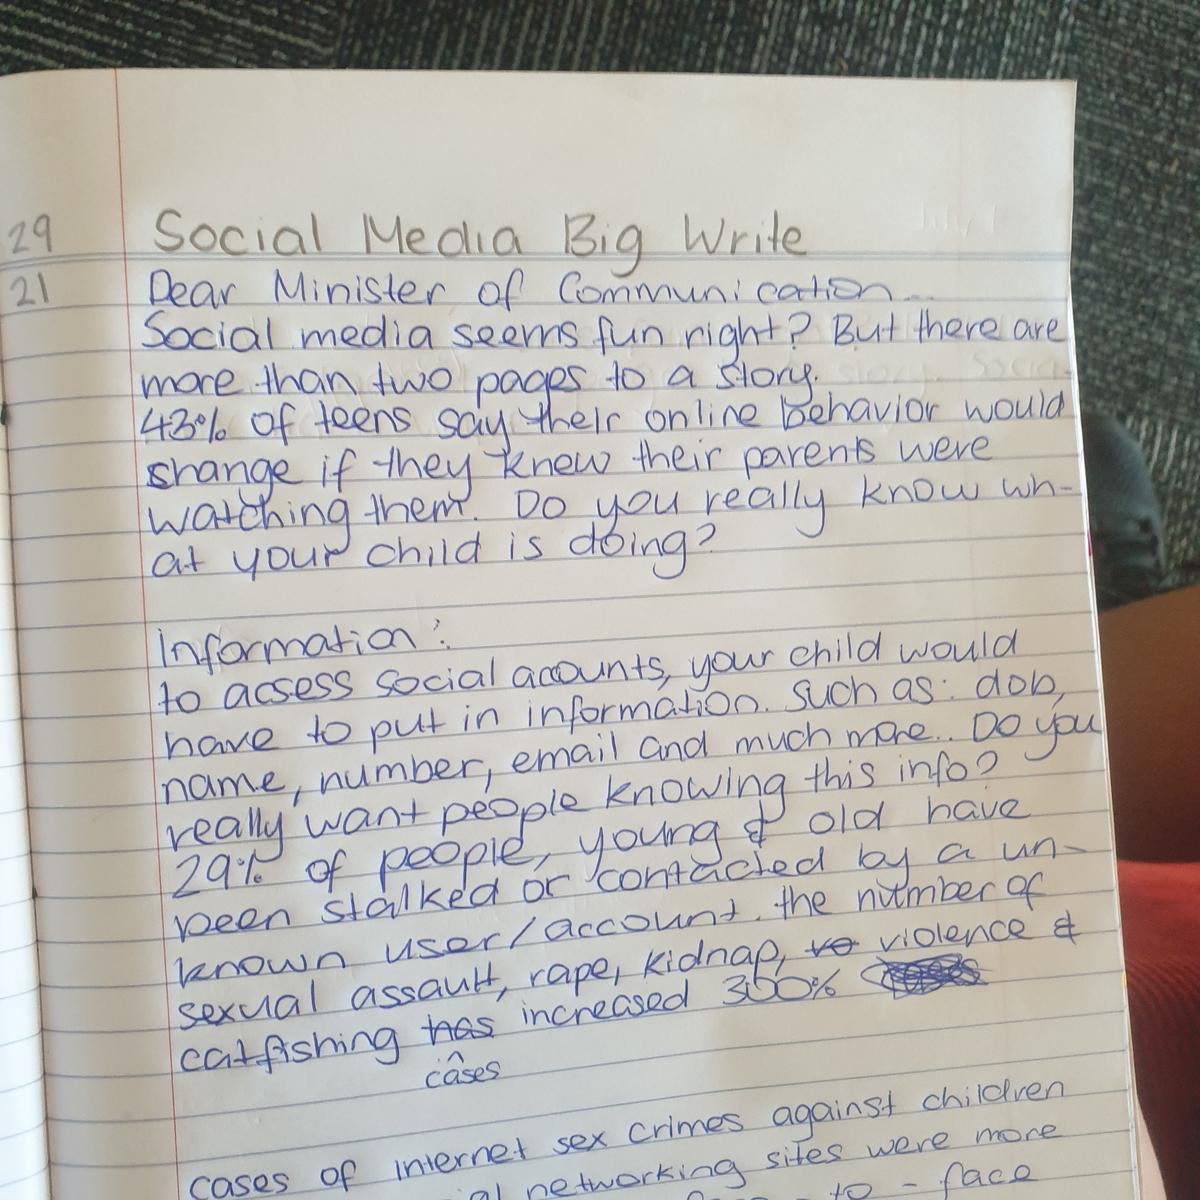 29 Social Media Big Write
21 Dear Minister of Communication...
Social media seems fun right? But there are
more than two pages to a story.
43% of teens say their online behavior would
shange if they knew their parents were
watching them. Do you really know wh-
at your child is doing?
Information:
to acsess social accounts, your child would
have to put in information. Such as: dob,
name, number, email and much more.. Do you
really want people knowing this info?
29% of people, young & old have
been stalked or contacted by a un-
known user/account. the number of
sexual assault, rape, kidnap, vo violence &
catfishing has increased 300%
cases
cases of internet sex crimes against children
networking sites were more
to - face